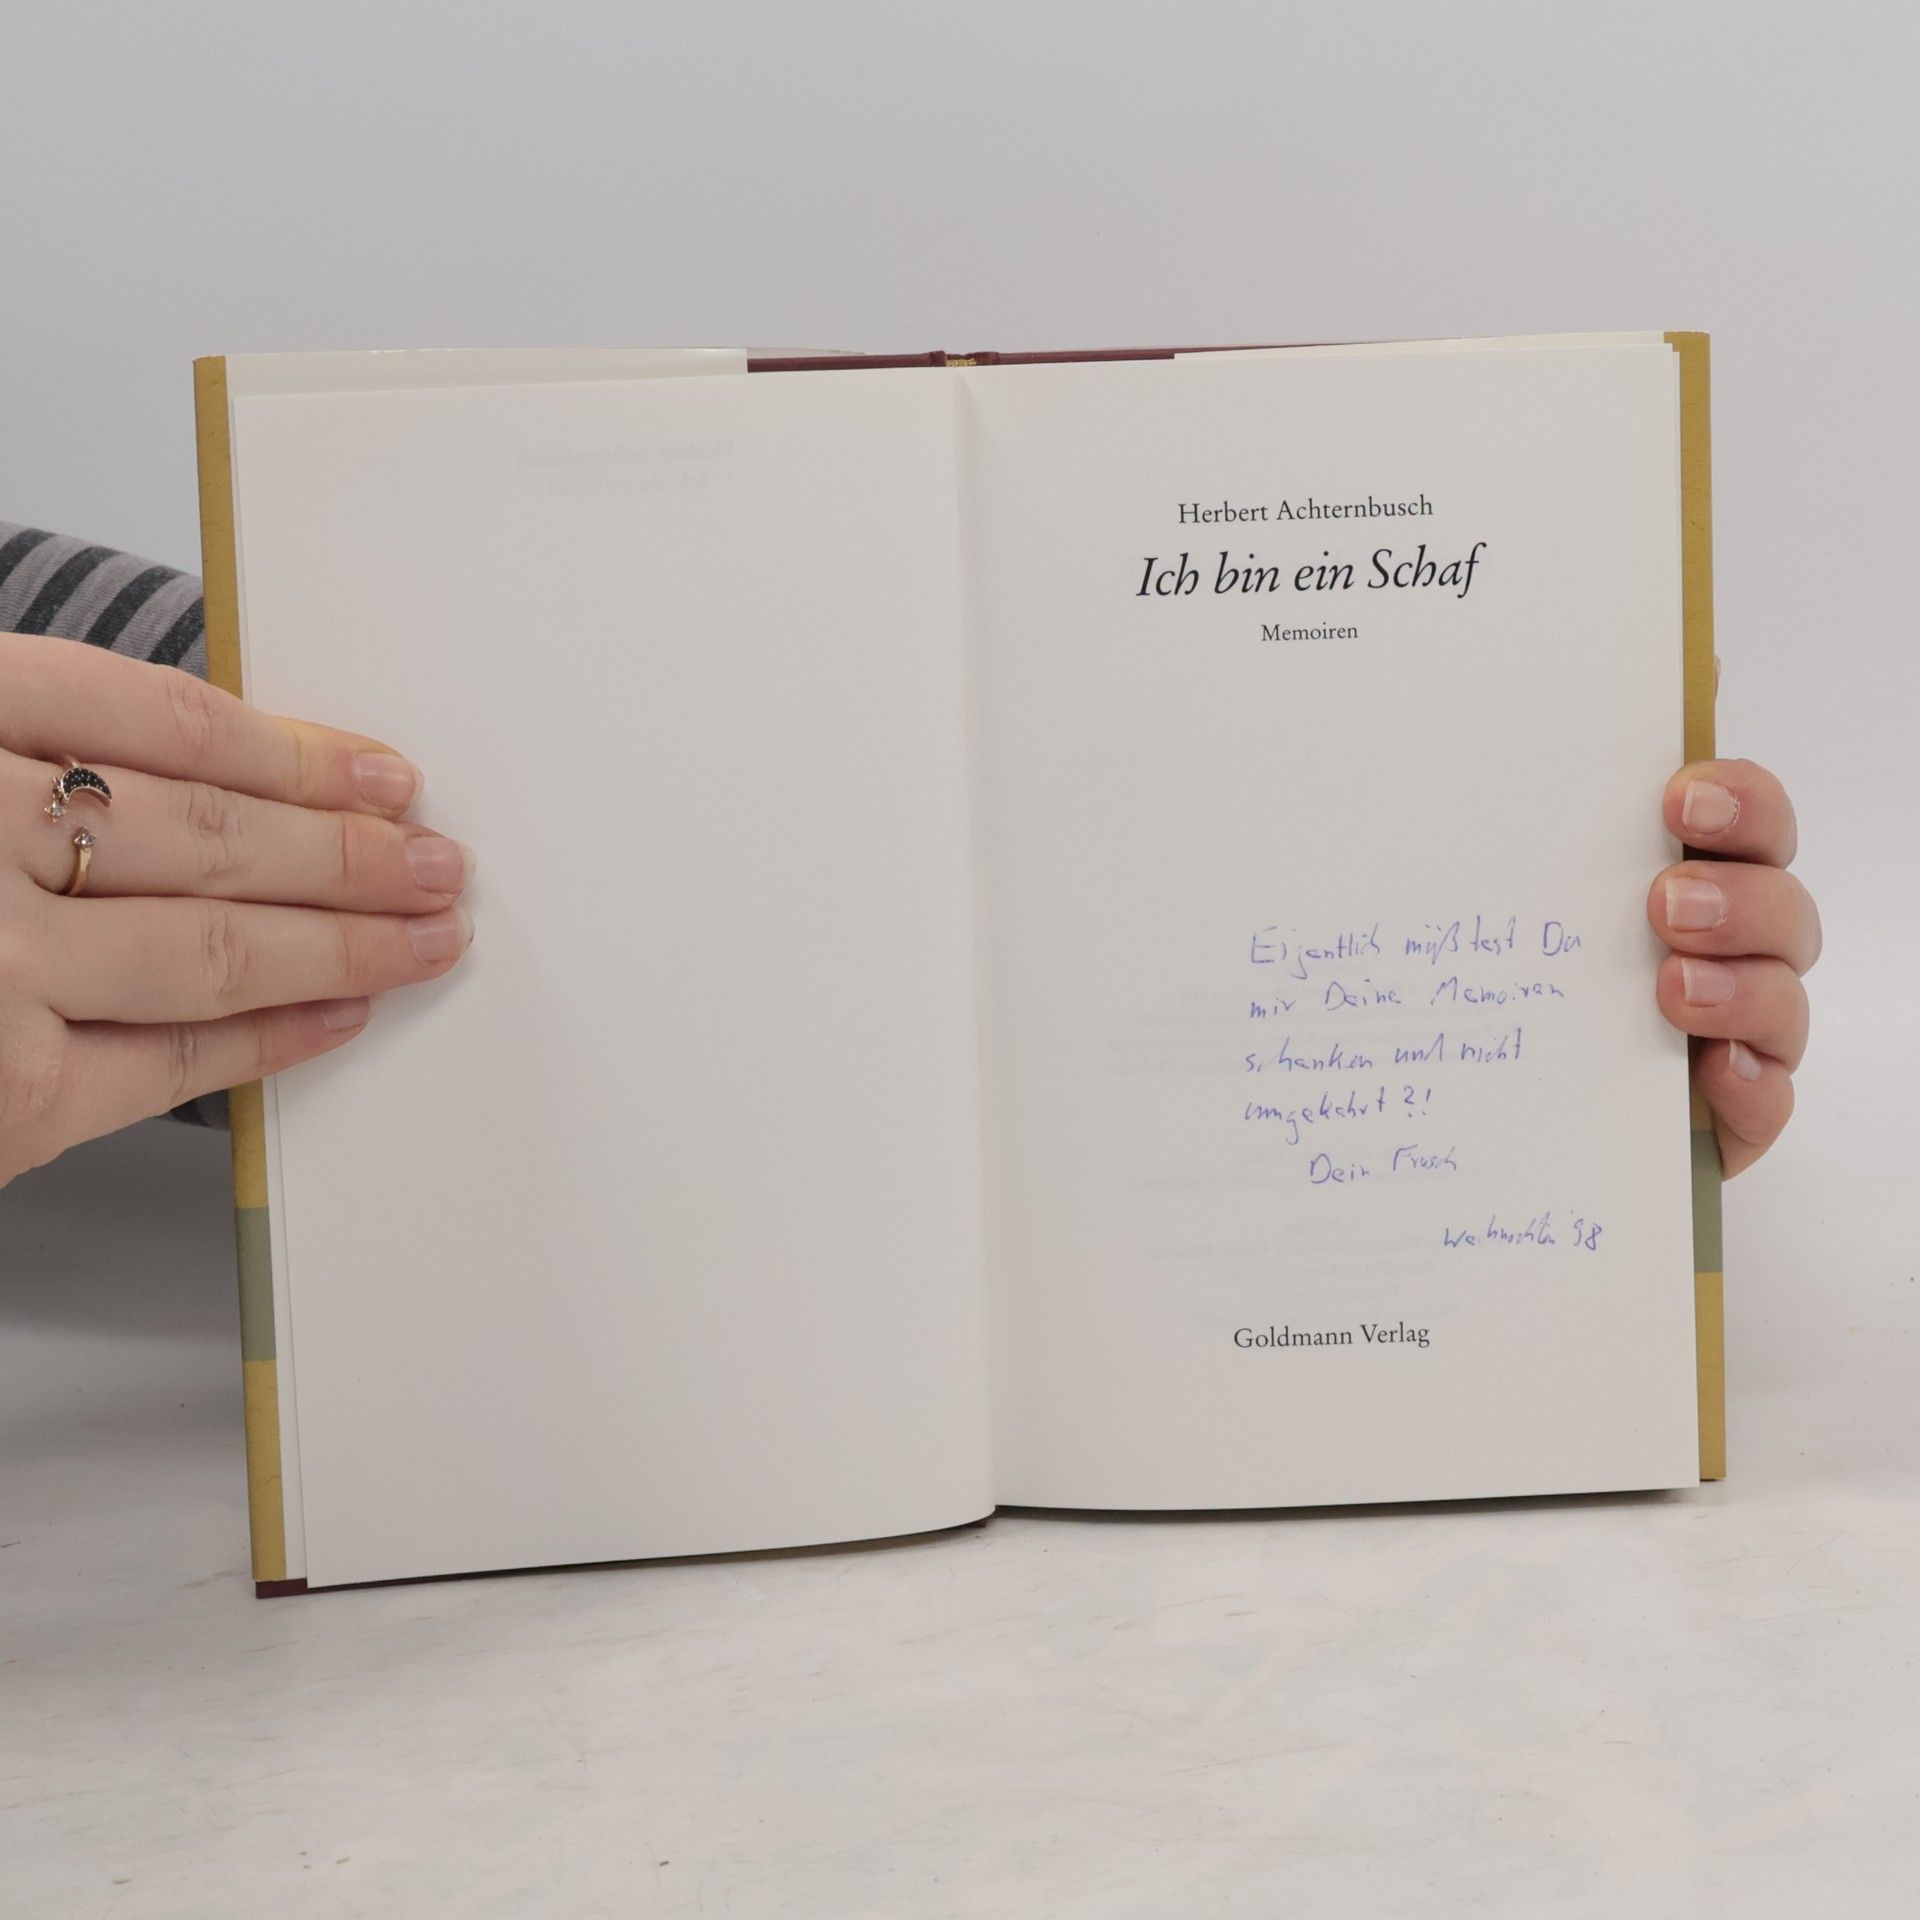 Herbert Achternbusch
Ich bin ein Schaf
Memoiren
Eigentlich müßtest Du
mir Deine Memoiren
schenken und nicht
umgekehrt ?!
Dein Frosch
Weihnachten '98
Goldmann Verlag